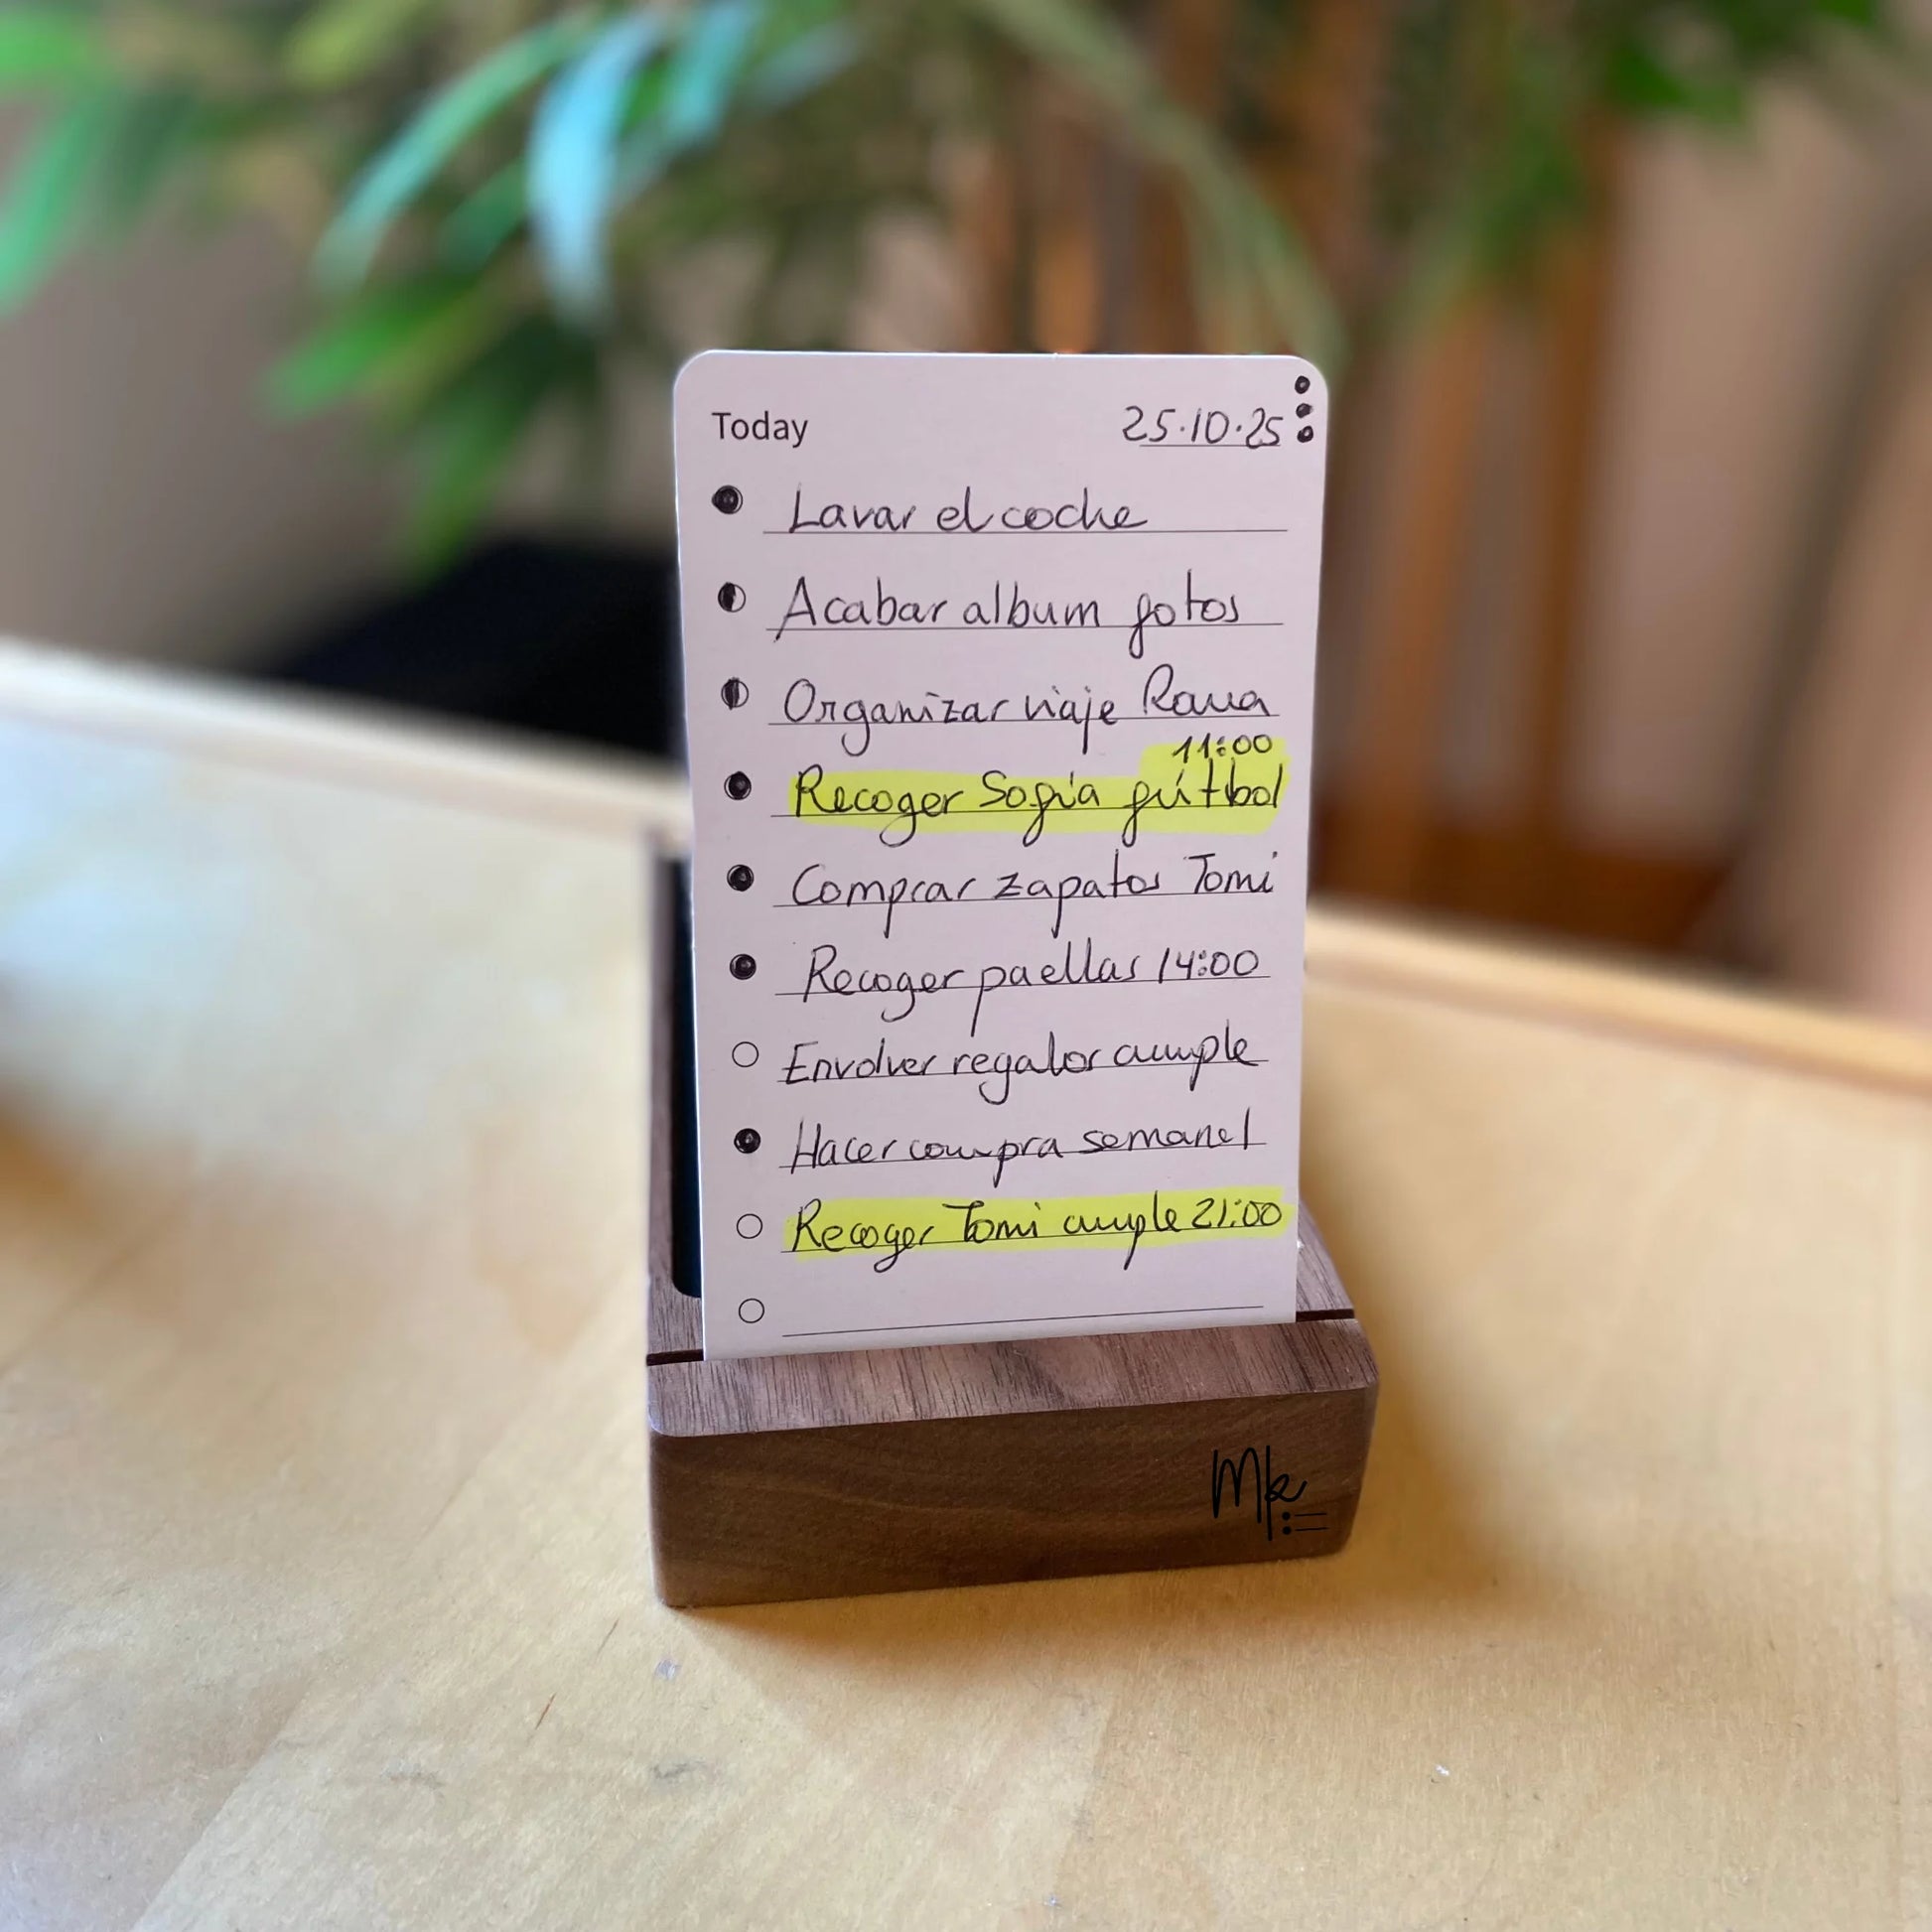 Today 25.10.25
Lavar el coche
Acabar album fotos
Organizar viaje Roma
11:00
Recoger Sofia fútbol
Comprar zapatos Tomi
Recoger paellas 14:00
Envolver regalos cumple
Hacer compra semanal
Recoger Tomi cumple 21:00
Mk